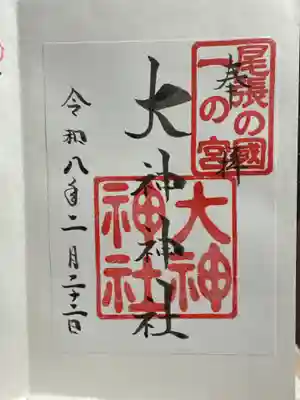 尾張の國
一の宮
奉拝
大神神社
大神
神社
令和八年二月二十二日